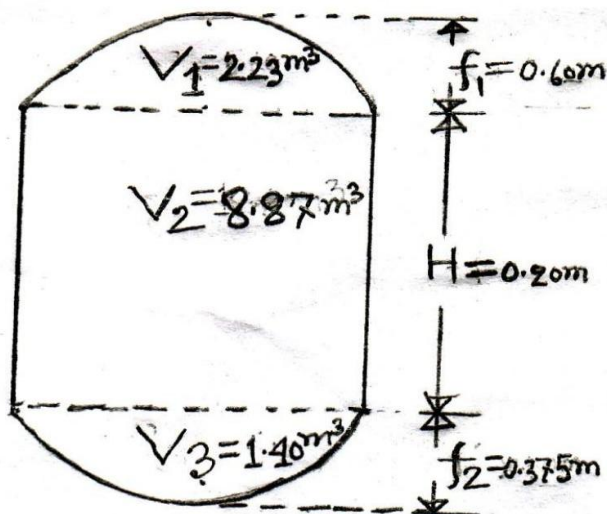 V1=2.23m³
f1=0.60m
V2=8.87m³
H=0.20m
V3=1.40m³
f2=0.375m